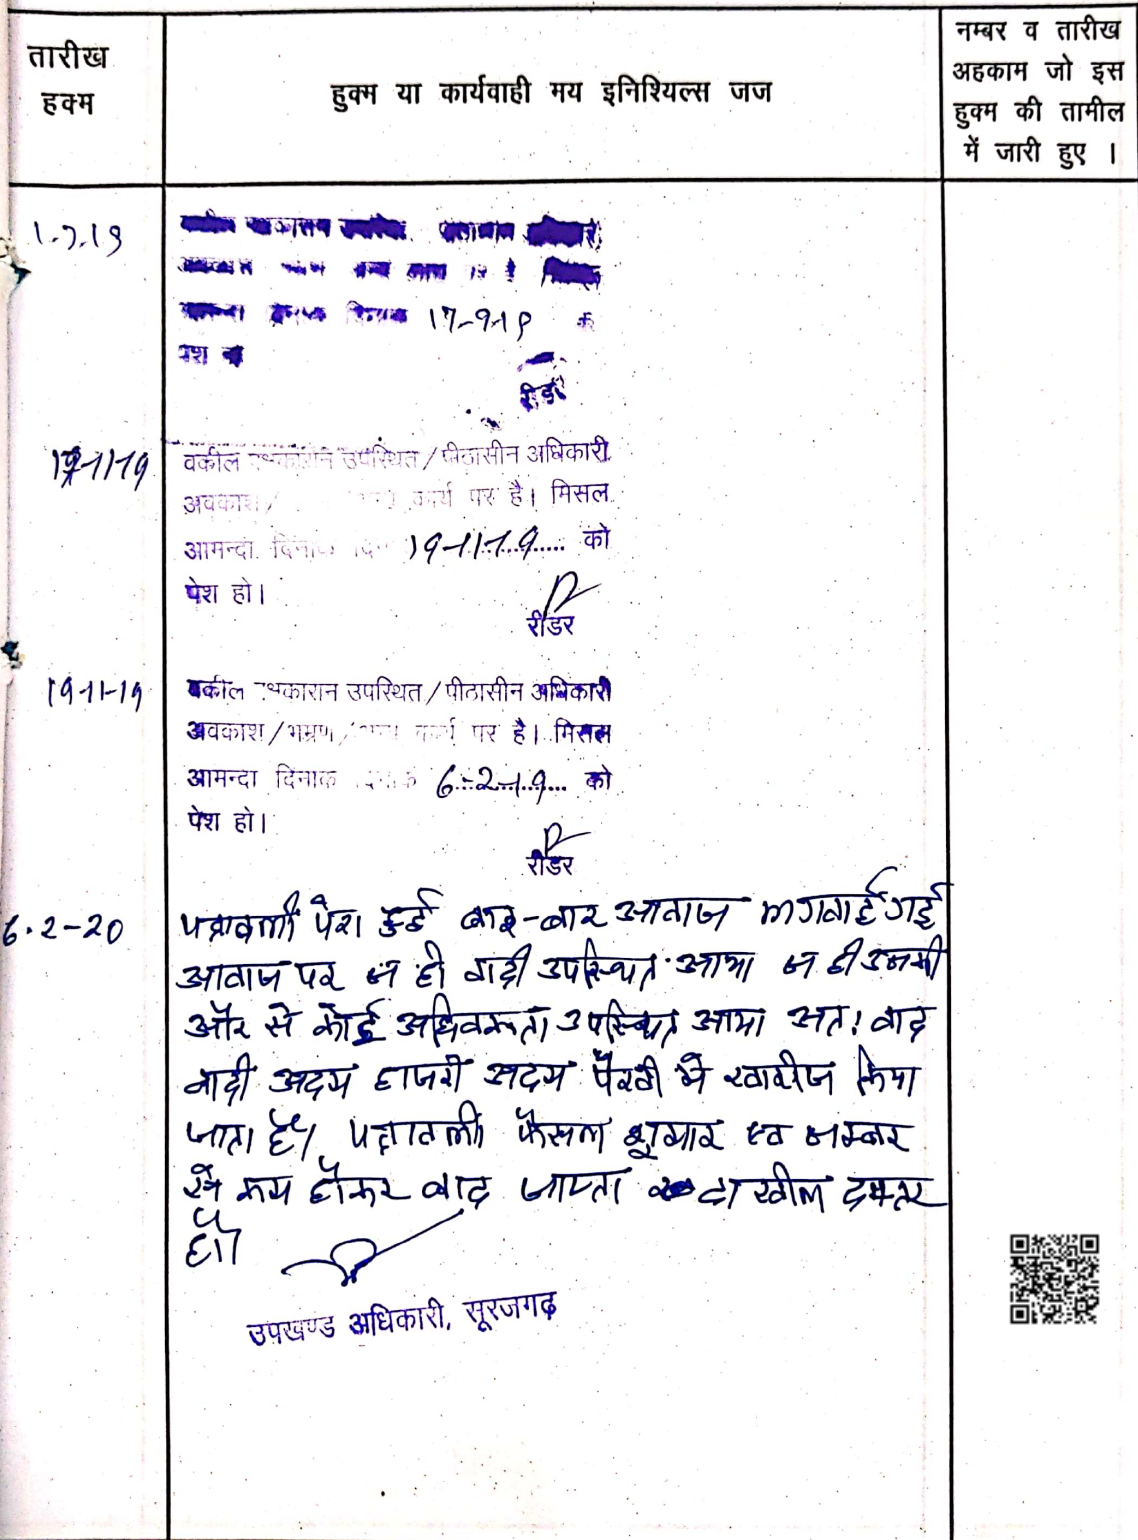 तारीख
हक्म
हुक्म या कार्यवाही मय इनिशियल्स जज
नम्बर व तारीख
अहकाम जो इस
हुक्म की तामील
में जारी हुए ।
1.7.19
17-9-19
पेश
रीडर
वकील उपस्थित/पीठासीन अधिकारी
अवकाश/ कार्य पर है। मिसल
आमन्दा दिनाक 19-11-19 को
पेश हो।
रीडर
19-11-19
वकील उपस्थित/पीठासीन अधिकारी
अवकाश/भम्रण/ कार्य पर है। मिसल
आमन्दा दिनाक 6-2-19 को
पेश हो।
रीडर
6.2-20
पत्रावली पेश हुई बार-बार आवाज लगवाई गई
आवाज पर न ही वादी उपस्थित आया न ही उनकी
और से कोई अधिवक्ता उपस्थित आया अत: वाद
वादी अदम हाजरी अदम पैरवी मे खारीज किया
जाता है। पत्रावली फैसल शूमार नम्बर
से कम होकर बाद जाप्ता दाखील दफ्तर
हो।
उपखण्ड अधिकारी, सूरजगढ़